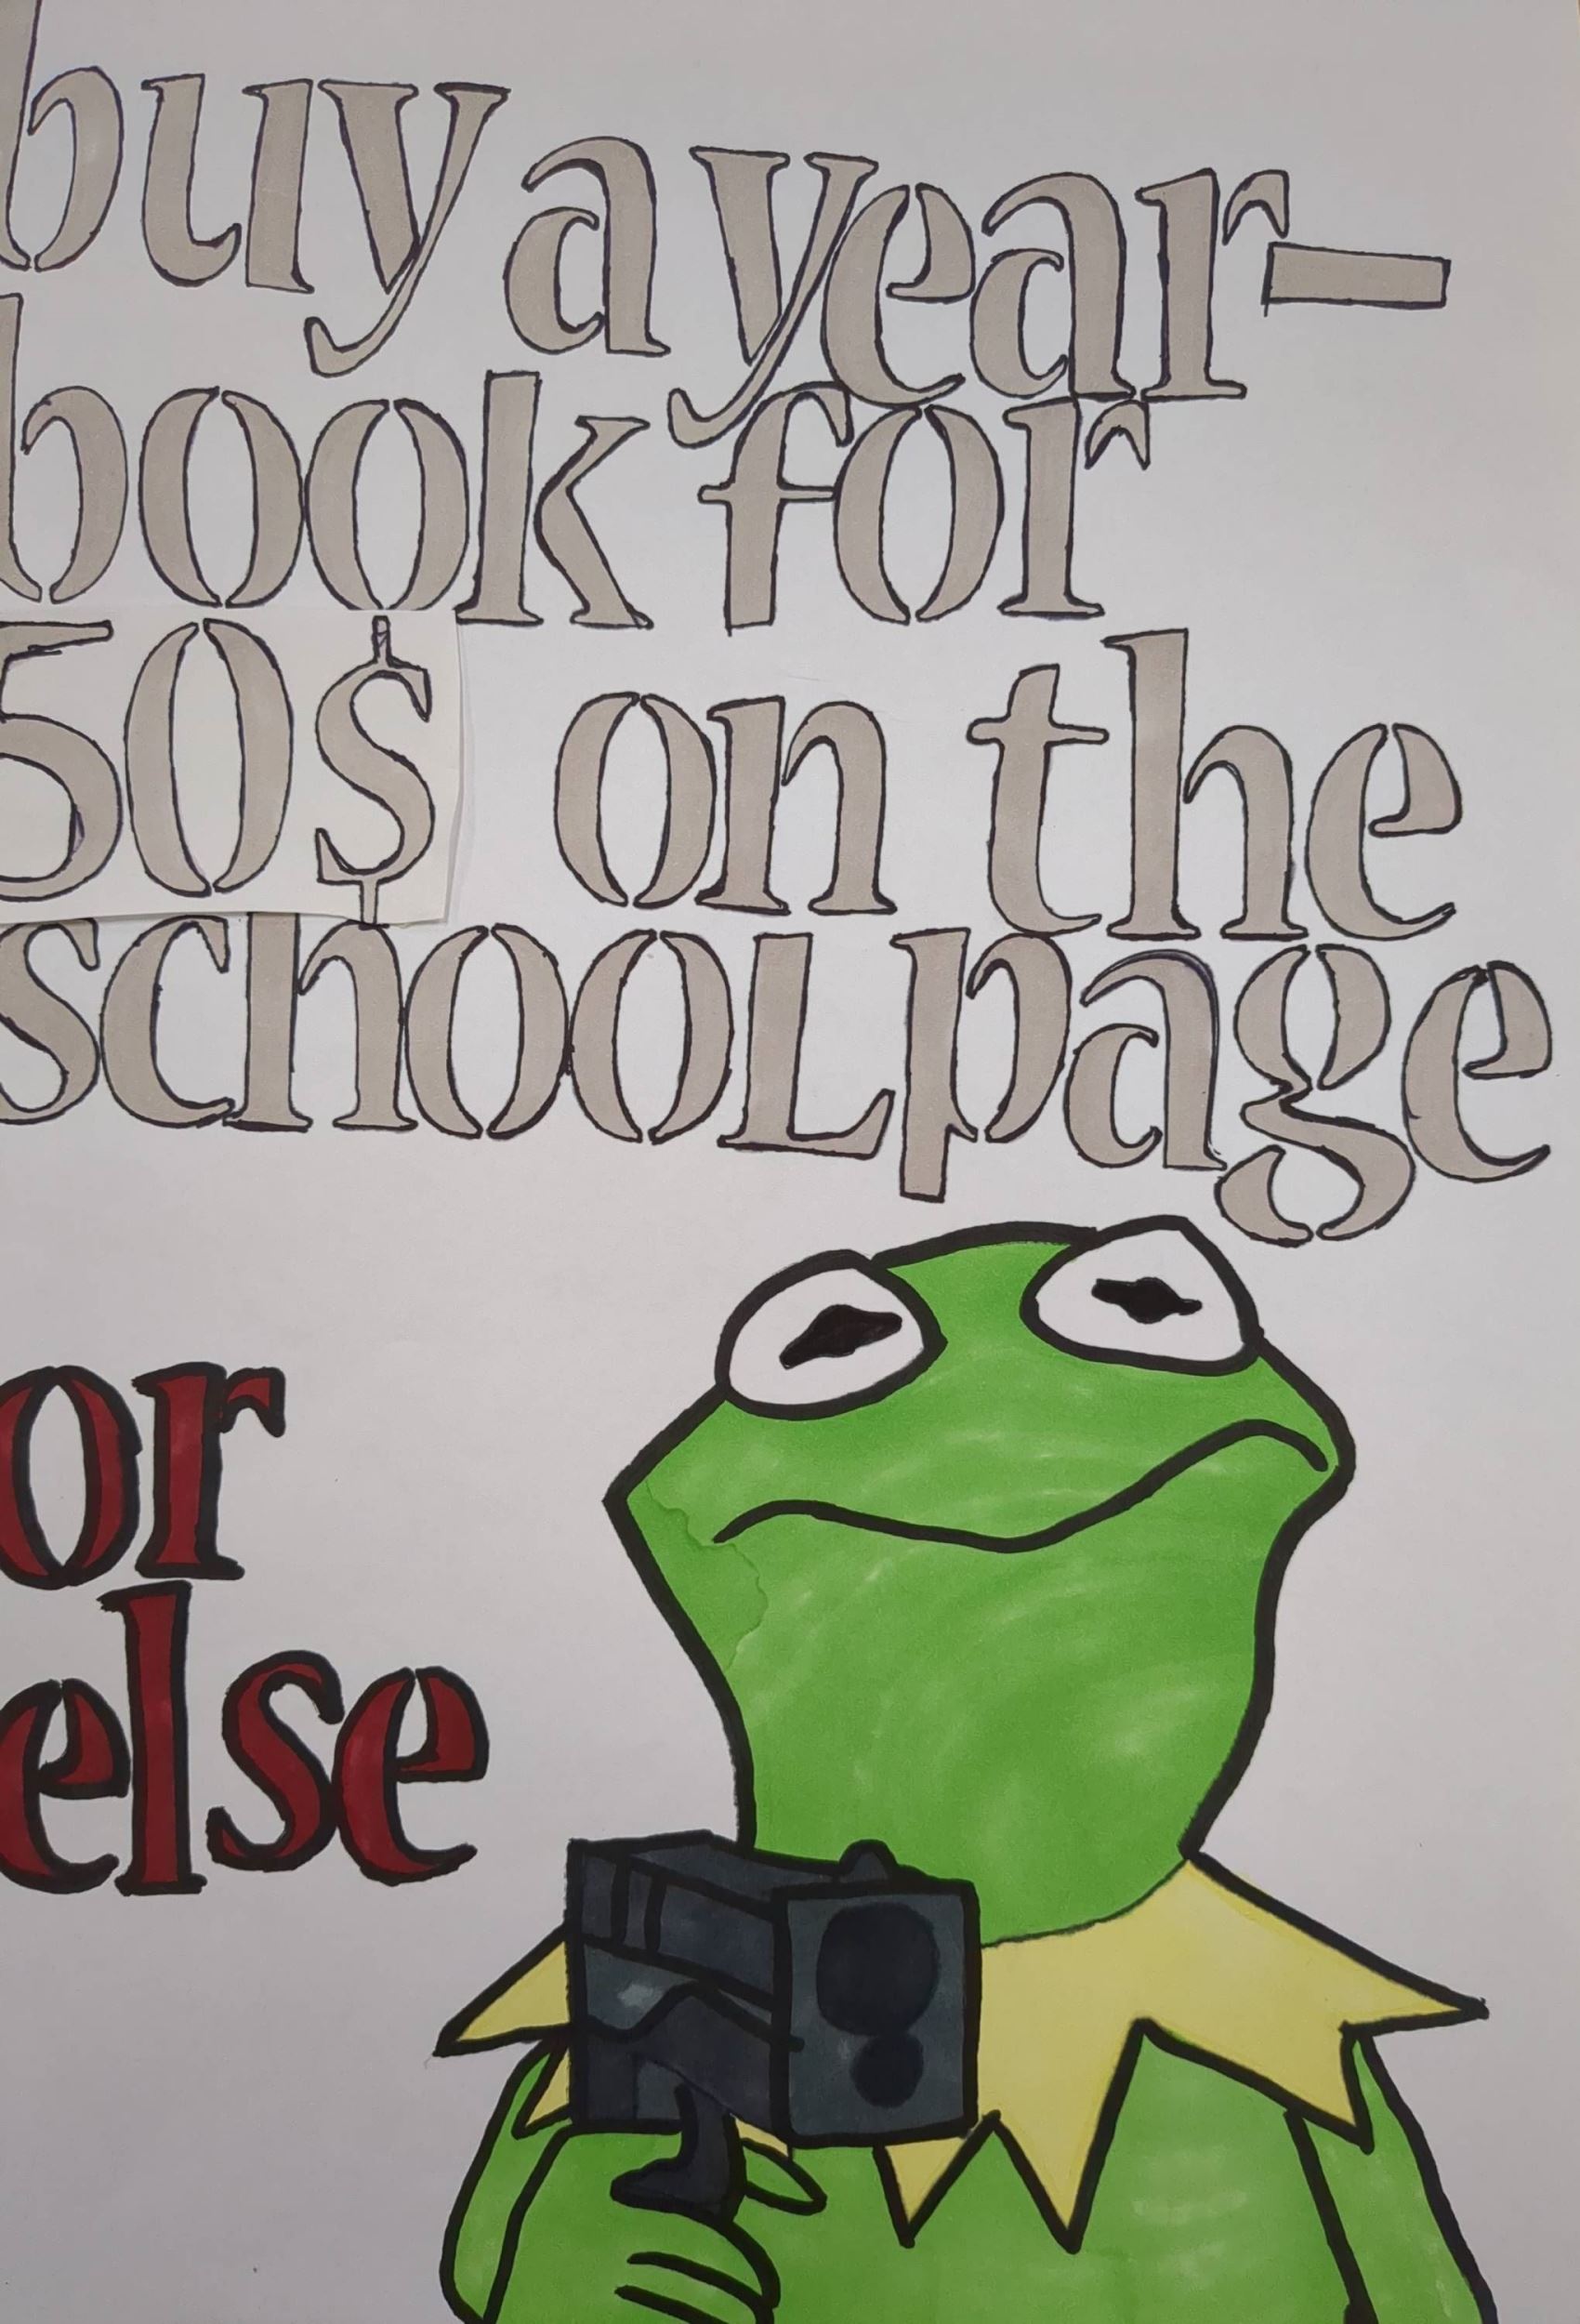 buy a year-
book for
50$ on the
school page
or
else